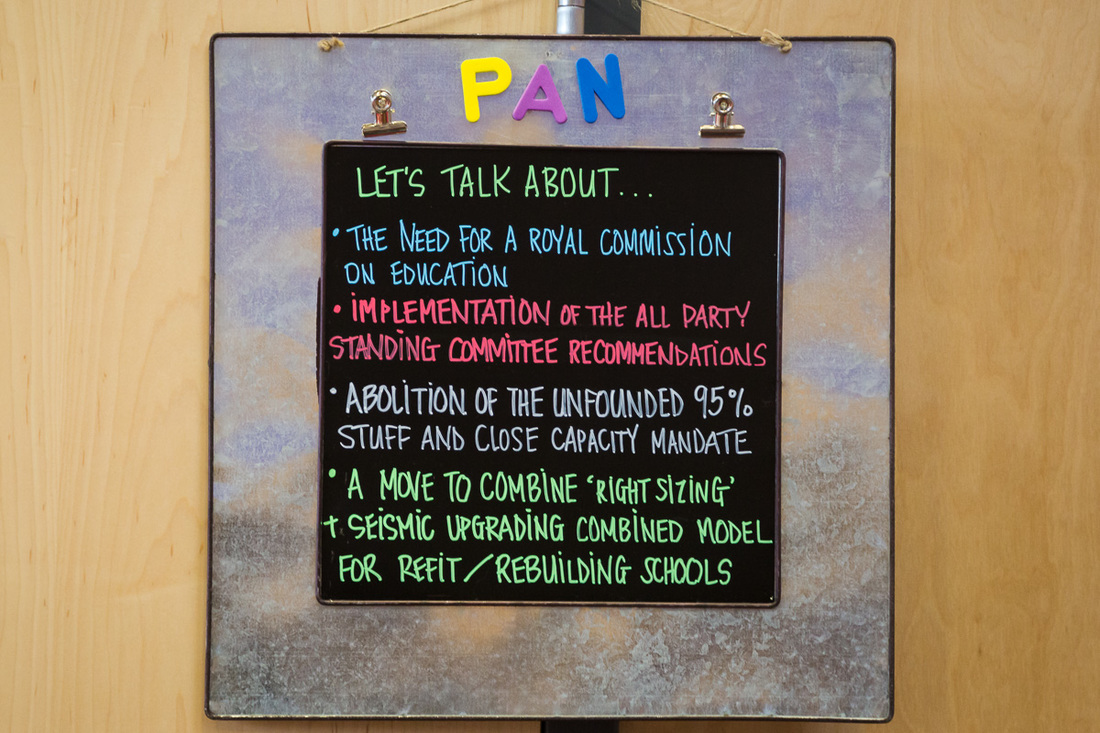 PAN
LET'S TALK ABOUT...
• THE NEED FOR A ROYAL COMMISSION
ON EDUCATION
• IMPLEMENTATION OF THE ALL PARTY
STANDING COMMITTEE RECOMMENDATIONS
• ABOLITION OF THE UNFOUNDED 95%
STUFF AND CLOSE CAPACITY MANDATE
• A MOVE TO COMBINE 'RIGHT SIZING'
+ SEISMIC UPGRADING COMBINED MODEL
FOR REFIT/REBUILDING SCHOOLS